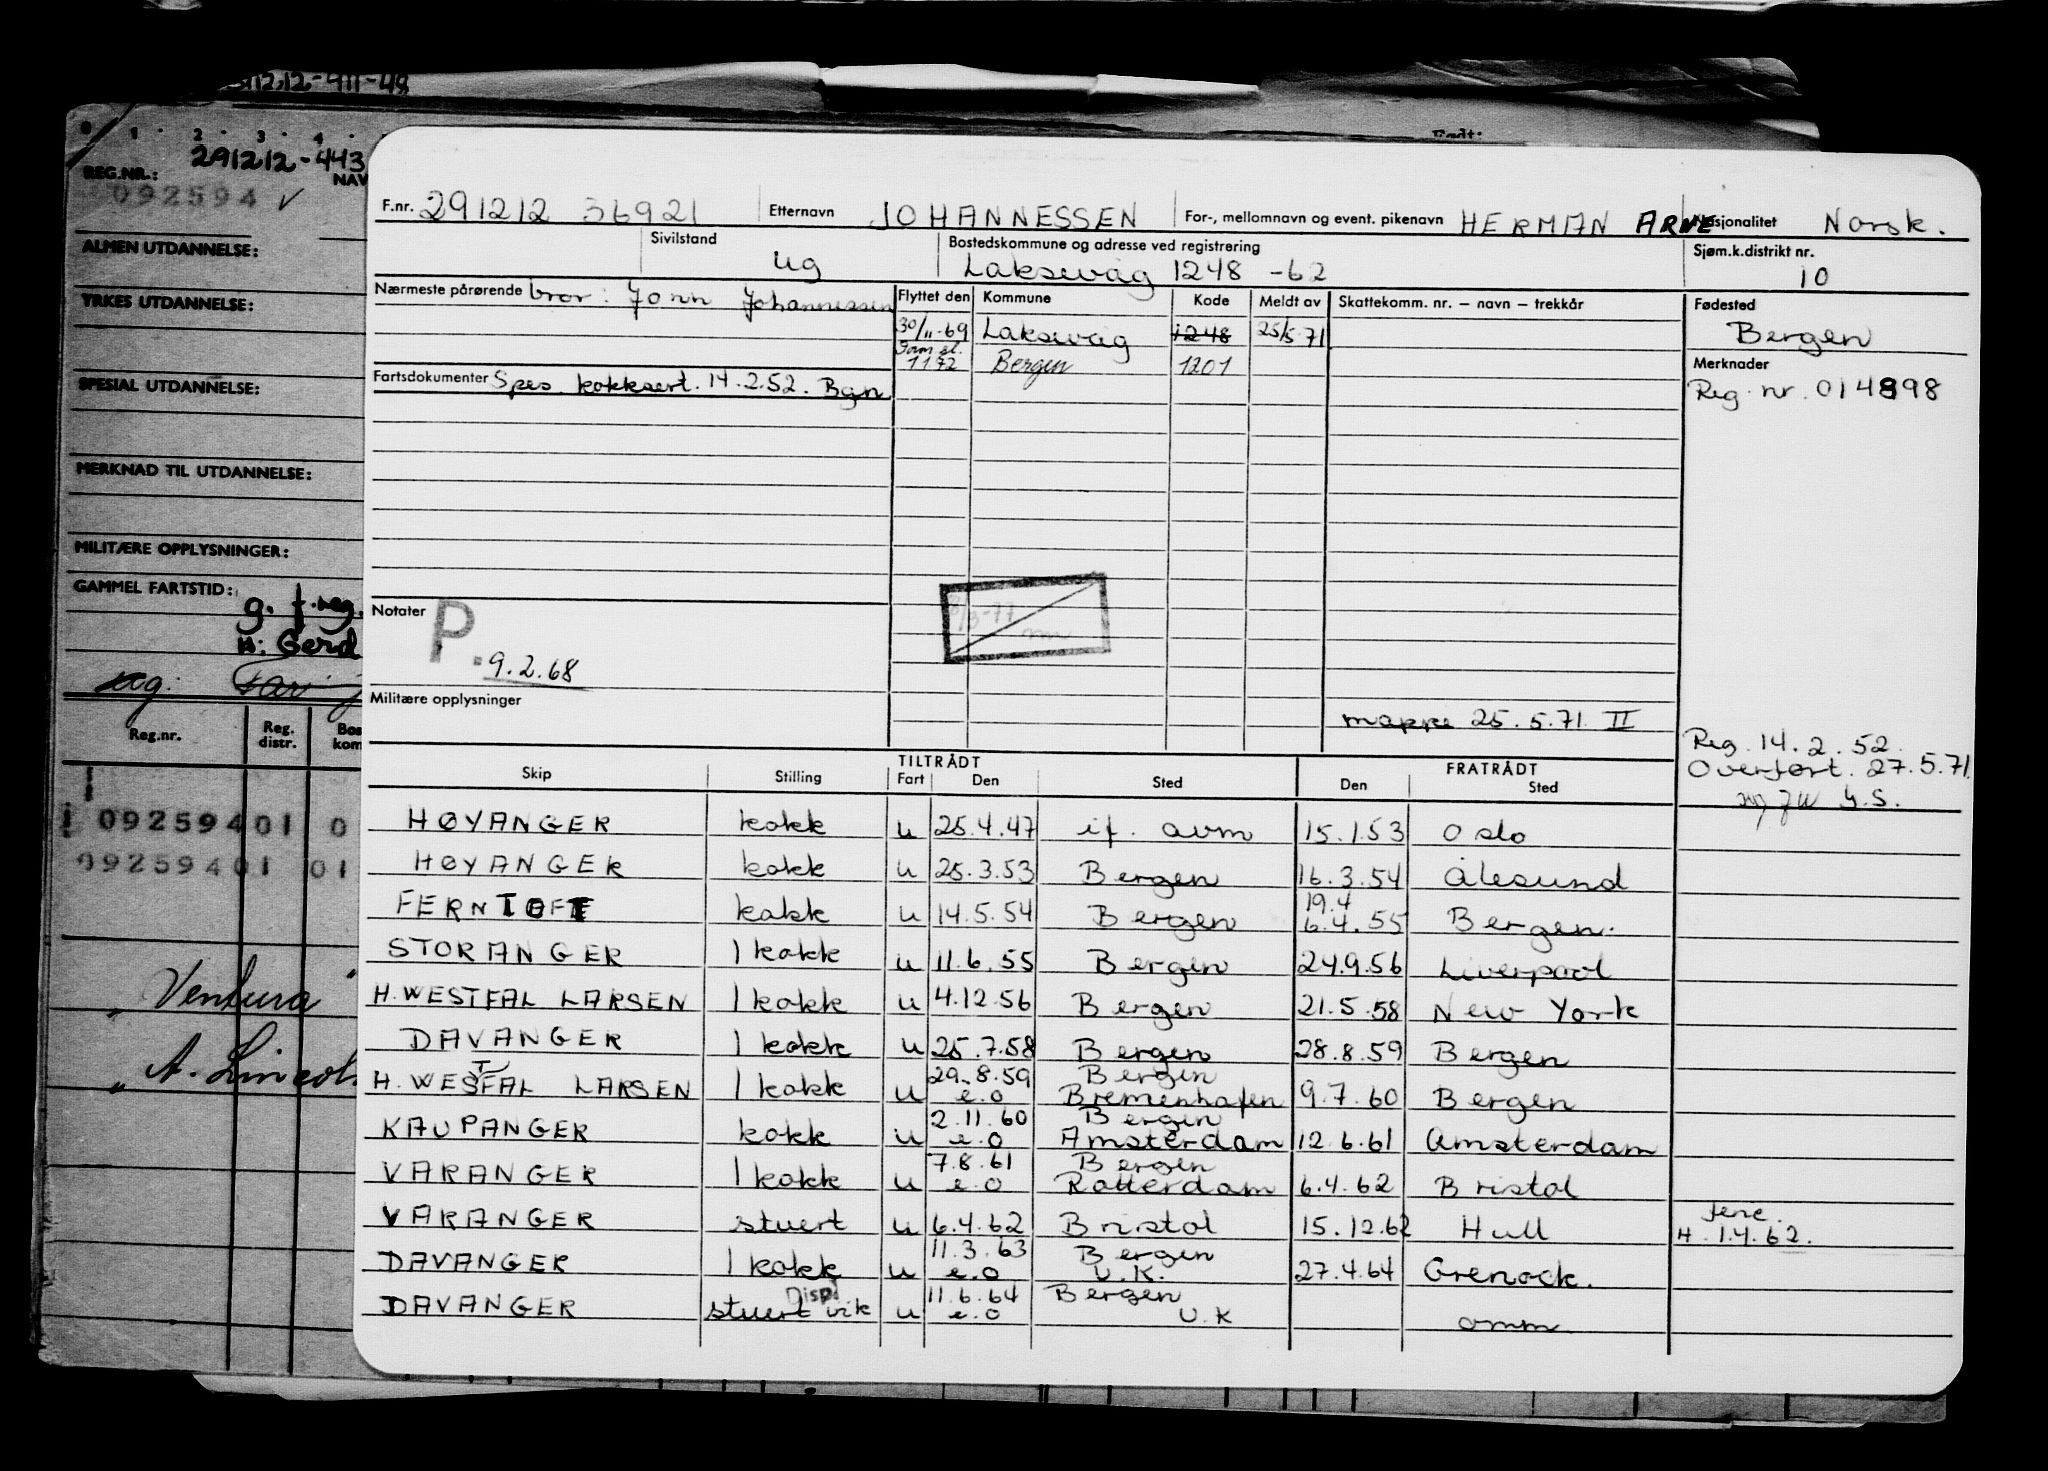 291212-911-48
Født:
0 1 2 3 4
291212-443
REG.NR.: NAV
092594 ✓
ALMEN UTDANNELSE:
YRKES UTDANNELSE:
SPESIAL UTDANNELSE:
MERKNAD TIL UTDANNELSE:
MILITÆRE OPPLYSNINGER:
GAMMEL FARTSTID:
g. f.reg.
H: Gerd
Reg.nr. Reg. distr. Bos kom
09259401 0
09259401 01
" Ventura "
" A. Lincol
F.nr. 291212 36921 Etternavn JOHANNESSEN For-, mellomnavn og event. pikenavn HERMAN ARNE Nasjonalitet Norsk.
Sivilstand ug Bostedskommune og adresse ved registrering Laksevåg 1248 -62 Sjøm.k.distrikt nr. 10
Nærmeste pårørende bror: Jonn Johannessen Flyttet den Kommune Kode Meldt av Skattekomm. nr. – navn – trekkår Fødested
30/11-69 Laksevåg 1248 25/5-71 Bergen
Sam sl. 1172 Bergen 1201 Merknader
Fartsdokumenter Spes. kokksert. 14.2.52. Bgn Reg. nr. 014898
Notater P. 9.2.68
8/3-77
Militære opplysninger
mappe 25.5.71 II
Reg. 14.2.52.
Overført. 27.5.71.
Skip Stilling TILTRÅDT Fart Den Sted FRATRÅDT Den Sted
HØYANGER kokk u 25.4.47 if. avm 15.1.53 Oslo
HØYANGER kokk u 25.3.53 Bergen 16.3.54 Ålesund
FERNTOFT kokk u 14.5.54 Bergen 19.4 6.4.55 Bergen.
STORANGER 1 kokk u 11.6.55 Bergen 24.9.56 Liverpool
H. WESTFAL LARSEN 1 kokk u 4.12.56 Bergen 21.5.58 New York
DAVANGER 1 kokk u 25.7.58 Bergen 28.8.59 Bergen
H. WESTFAL LARSEN 1 kokk u 29.8.59 e.o Bergen Bremenhafen 9.7.60 Bergen
KAUPANGER kokk u 2.11.60 e.o Bergen Amsterdam 12.6.61 Amsterdam
VARANGER 1 kokk u 7.8.61 e.o Bergen Rotterdam 6.4.62 Bristol
VARANGER stuert u 6.4.62 Bristol 15.12.62 Hull ferie. H. 1.4.62.
DAVANGER 1 kokk u 11.3.63 e.o Bergen U.K. 27.4.64 Grenock.
DAVANGER stuert Disp vik u 11.6.64 e.o Bergen U.K omm.